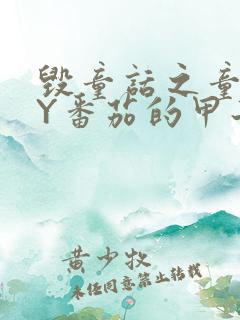 毁童话之童
Y番茄的甲
黄少牧
未经同意禁止转载